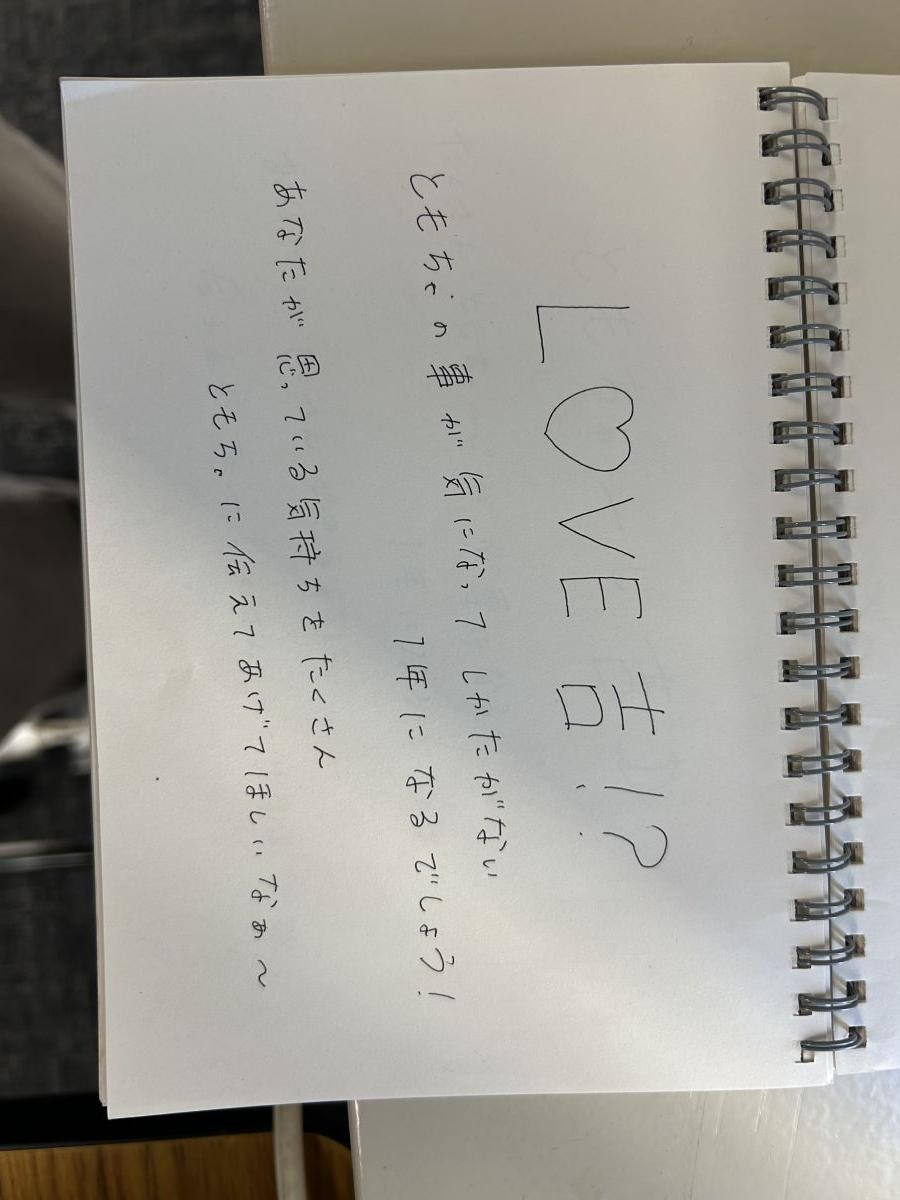 L♡VE吉!?
ともちぃの事が気になってしかたがない
1年になるでしょう!
あなたが思っている気持ちをたくさん
ともちぃに伝えてあげてほしいなぁ〜